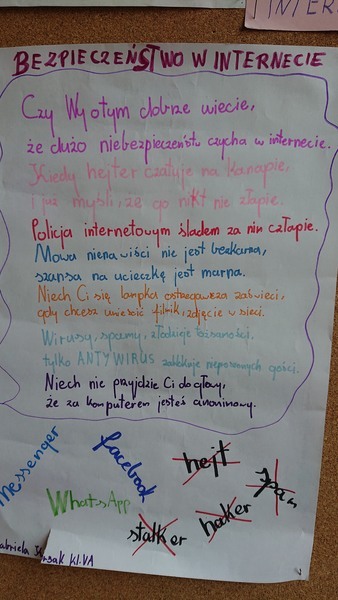 BEZPIECZEŃSTWO W INTERNECIE
Czy Wy o tym dobrze wiecie,
że dużo niebezpieczeństw czyha w internecie.
Kiedy hejter czatuje na kanapie,
i już myśli, że go nikt nie złapie.
Policja internetowym śladem za nim człapie.
Mowa nienawiści nie jest bezkarna,
szansa na ucieczkę jest marna.
Niech Ci się lampka ostrzegawcza zaświeci,
gdy chcesz umieścić filmik, zdjęcie w sieci.
Wirusy, spamy, złodzieje tożsamości,
tylko ANTYWIRUS zablokuje nieproszonych gości.
Niech nie przyjdzie Ci do głowy,
że za komputerem jesteś anonimowy.
Messenger
facebook
hejt
spam
WhatsApp
stalker
haker
kl.VA